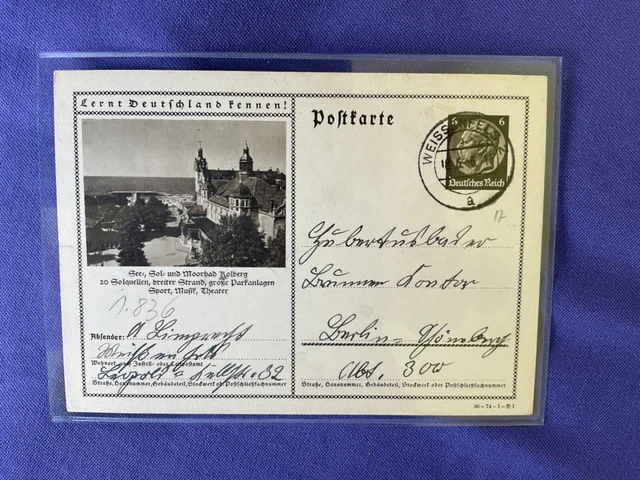 Lernt Deutschland kennen!
See-, Sol- und Moorbad Kolberg
20 Solquellen, breiter Strand, große Parkanlagen
Sport, Musik, Theater
Absender:
Weißenfels
Wohnort, auch Zustell- oder Leitpostamt
Leopold-Kellstr. 32
Straße, Hausnummer, Gebäudeteil, Stockwerk od Postschließfachnummer
Postkarte
6 6
Deutsches Reich
WEISSENFELS
a
17
Hubertusbader
Brunnen Kontor
Berlin-Schöneberg
Abt. 300
Straße, Hausnummer, Gebäudeteil, Stockwerk oder Postschließfachnummer